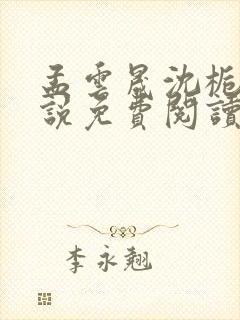 孟雲晟沈栀
說免費閱讀
李永翹